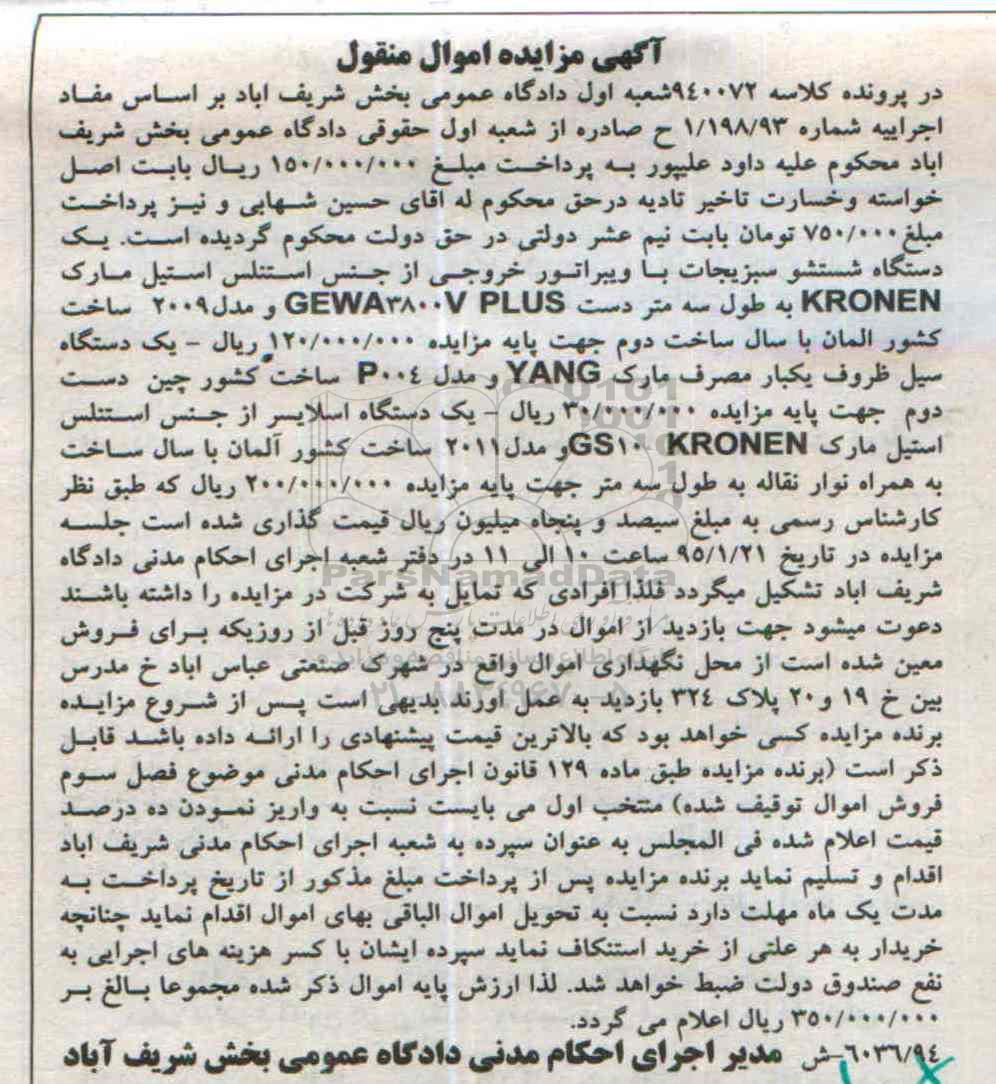 آگهی مزایده اموال منقول
در پرونده کلاسه ۹٤۰۰۷۲شعبه اول دادگاه عمومی بخش شریف اباد بر اساس مفاد
اجراییه شماره ۱/۱۹۸/۹۳ ح صادره از شعبه اول حقوقی دادگاه عمومی بخش شریف
اباد محکوم علیه داود علیپور به پرداخت مبلغ ۱۵۰/۰۰۰/۰۰۰ ریال بابت اصل
خواسته وخسارت تاخیر تادیه درحق محکوم له اقای حسین شهابی و نیز پرداخت
مبلغ۷۵۰/۰۰۰ تومان بابت نیم عشر دولتی در حق دولت محکوم گردیده است. یک
دستگاه شستشو سبزیجات با ویبراتور خروجی از جنس استنلس استیل مارک
KRONEN به طول سه متر دست GEWA۳۸۰۰V PLUS و مدل۲۰۰۹ ساخت
کشور المان با سال ساخت دوم جهت پایه مزایده ۱۲۰/۰۰۰/۰۰۰ ریال - یک دستگاه
سیل ظروف یکبار مصرف مارک YANG و مدل P۰۰٤ ساخت کشور چین دست
دوم جهت پایه مزایده ۳۰/۰۰۰/۰۰۰ ریال - یک دستگاه اسلایسر از جنس استنلس
استیل مارک GS۱۰ KRONENو مدل۲۰۱۱ ساخت کشور آلمان با سال ساخت
به همراه نوار نقاله به طول سه متر جهت پایه مزایده ۲۰۰/۰۰۰/۰۰۰ ریال که طبق نظر
کارشناس رسمی به مبلغ سیصد و پنجاه میلیون ریال قیمت گذاری شده است جلسه
مزایده در تاریخ ۹۵/۱/۲۱ ساعت ۱۰ الی ۱۱ در دفتر شعبه اجرای احکام مدنی دادگاه
شریف اباد تشکیل میگردد فلذا افرادی که تمایل به شرکت در مزایده را داشته باشند
دعوت میشود جهت بازدید از اموال در مدت پنج روز قبل از روزیکه برای فروش
معین شده است از محل نگهداری اموال واقع در شهرک صنعتی عباس اباد خ مدرس
بین خ ۱۹ و۲۰ پلاک ۳۲٤ بازدید به عمل اورند بدیهی است پس از شروع مزایده
برنده مزایده کسی خواهد بود که بالاترین قیمت پیشنهادی را ارائه داده باشد قابل
ذکر است (برنده مزایده طبق ماده ۱۲۹ قانون اجرای احکام مدنی موضوع فصل سوم
فروش اموال توقیف شده) منتخب اول می بایست نسبت به واریز نمودن ده درصد
قیمت اعلام شده فی المجلس به عنوان سپرده به شعبه اجرای احکام مدنی شریف اباد
اقدام و تسلیم نماید برنده مزایده پس از پرداخت مبلغ مذکور از تاریخ پرداخت به
مدت یک ماه مهلت دارد نسبت به تحویل اموال الباقی بهای اموال اقدام نماید چنانچه
خریدار به هر علتی از خرید استنکاف نماید سپرده ایشان با کسر هزینه های اجرایی به
نفع صندوق دولت ضبط خواهد شد. لذا ارزش پایه اموال ذکر شده مجموعا بالغ بر
۳۵۰/۰۰۰/۰۰۰ ریال اعلام می گردد.
٦۰۳٦/۹٤-ش مدیر اجرای احکام مدنی دادگاه عمومی بخش شریف آباد
ParsNamadData